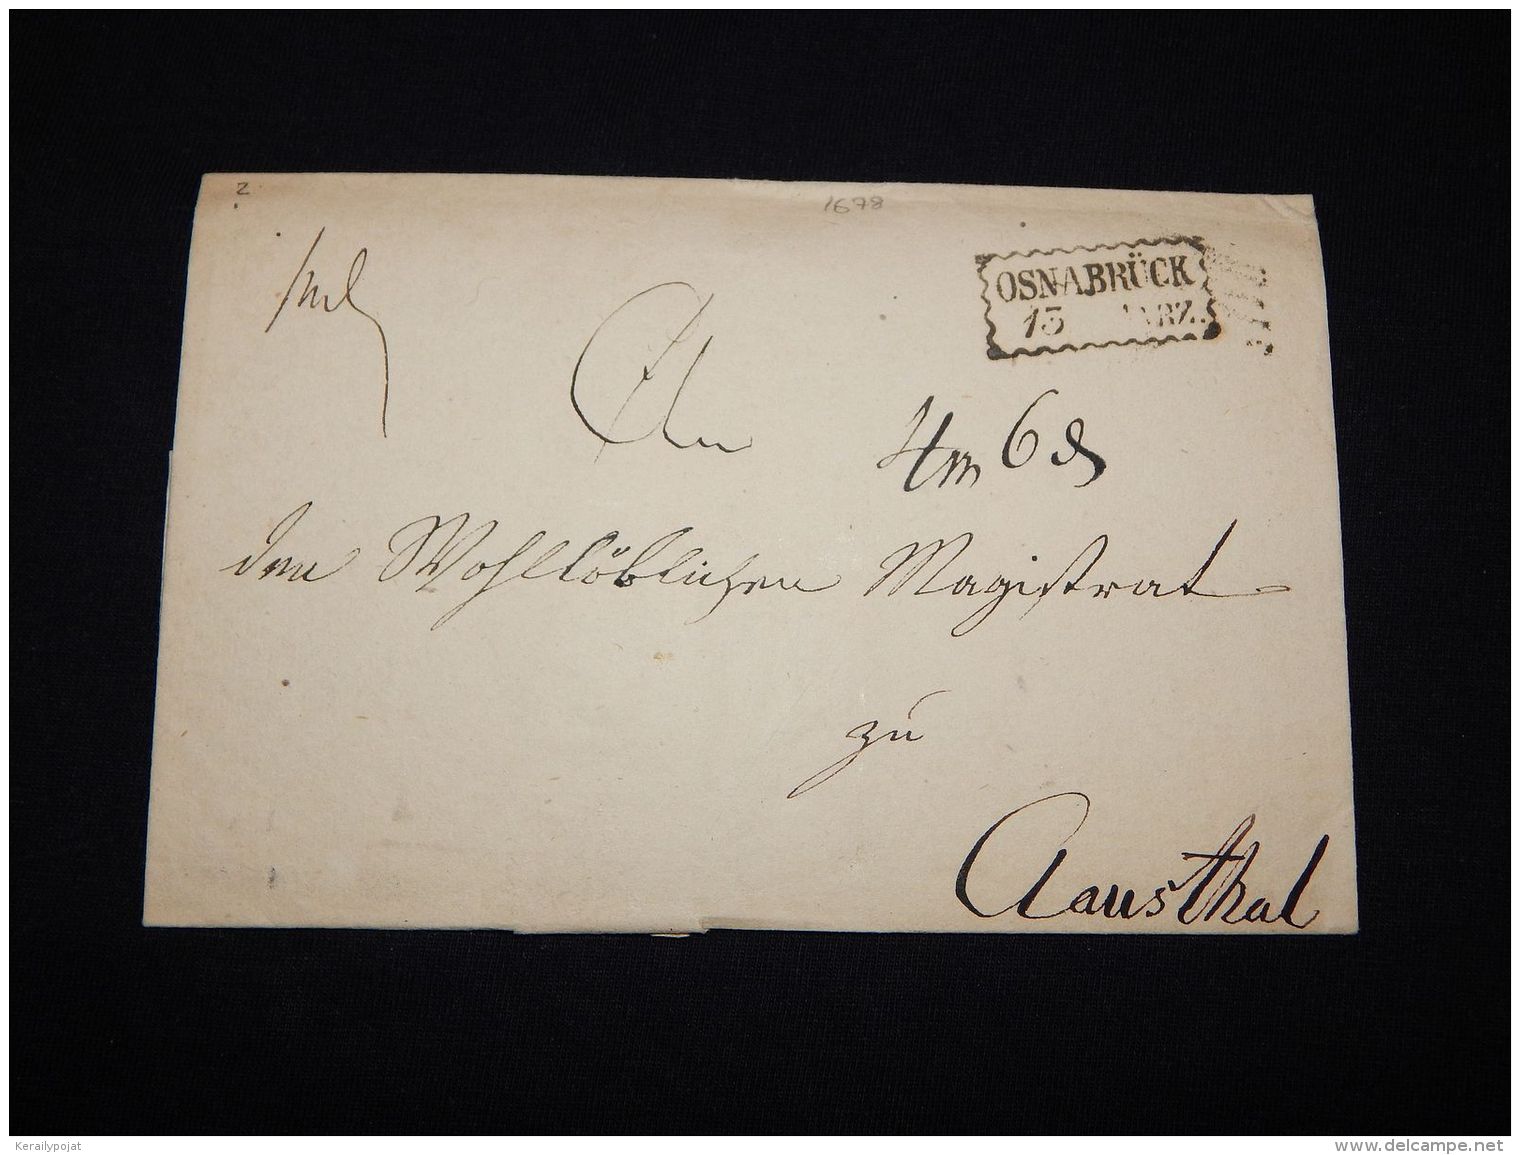 2
1678
OSNABRÜCK
13 MÄRZ.
An
den Wohllöblichen Magistrat
zu
Clausthal
Kerailypojat
www.delcampe.net